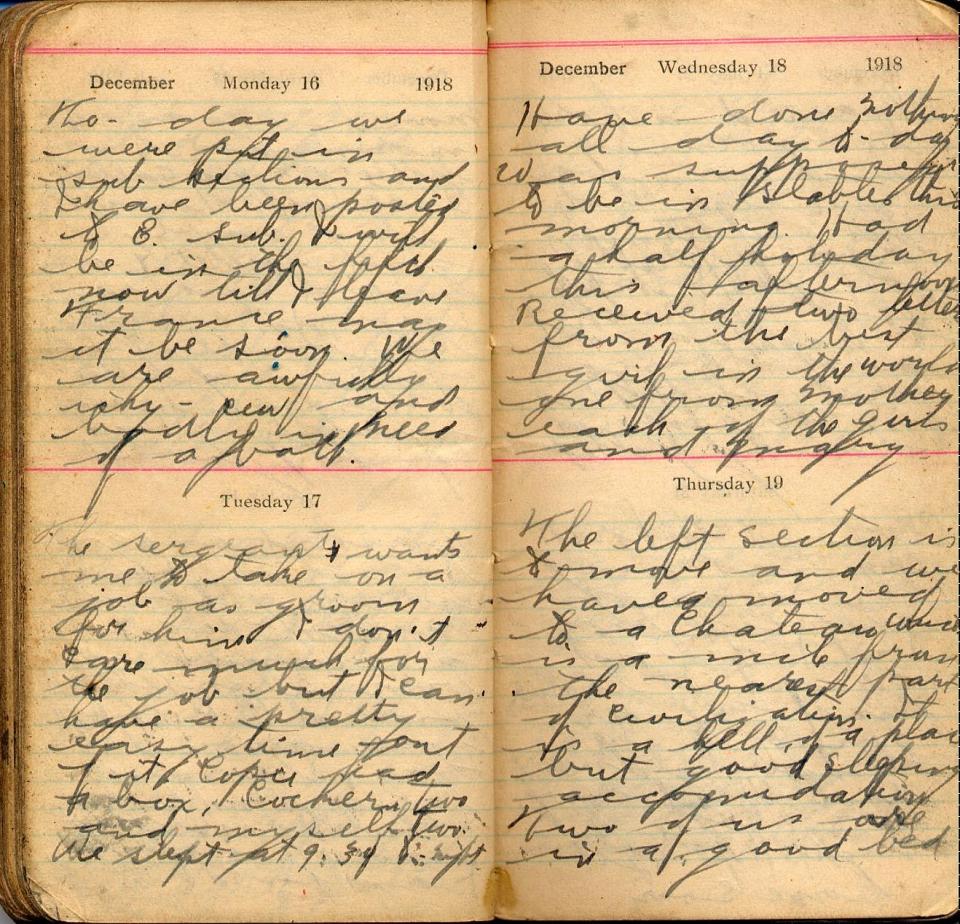 December Monday 16 1918
To-day we
were put in
sub sections and
I have been posted
to E. sub. I will
be in the
now till I leave
France may
it be soon. We
are awfully
and
badly in need
of a bath.
Tuesday 17
The sergeant wants
me to take on a
job as groom
for him I don't
care much for
the job but I can
have a pretty
easy time out
of it. had
a box, two
and myself two.
We slept at 9.30 to-night
December Wednesday 18 1918
Have done nothing
all day to-day
Was supposed
to be in stables this
morning. Had
a half holiday
this afternoon
Received two letters
from the best
girl in the world
one from Mother
each of the girls
and
Thursday 19
The left section is
to move and we
have moved
to a Chateau which
is a mile from
the nearest part
of civilization. It
is a hell of a place
but good sleeping
accomidation
Two of us are
in a good bed